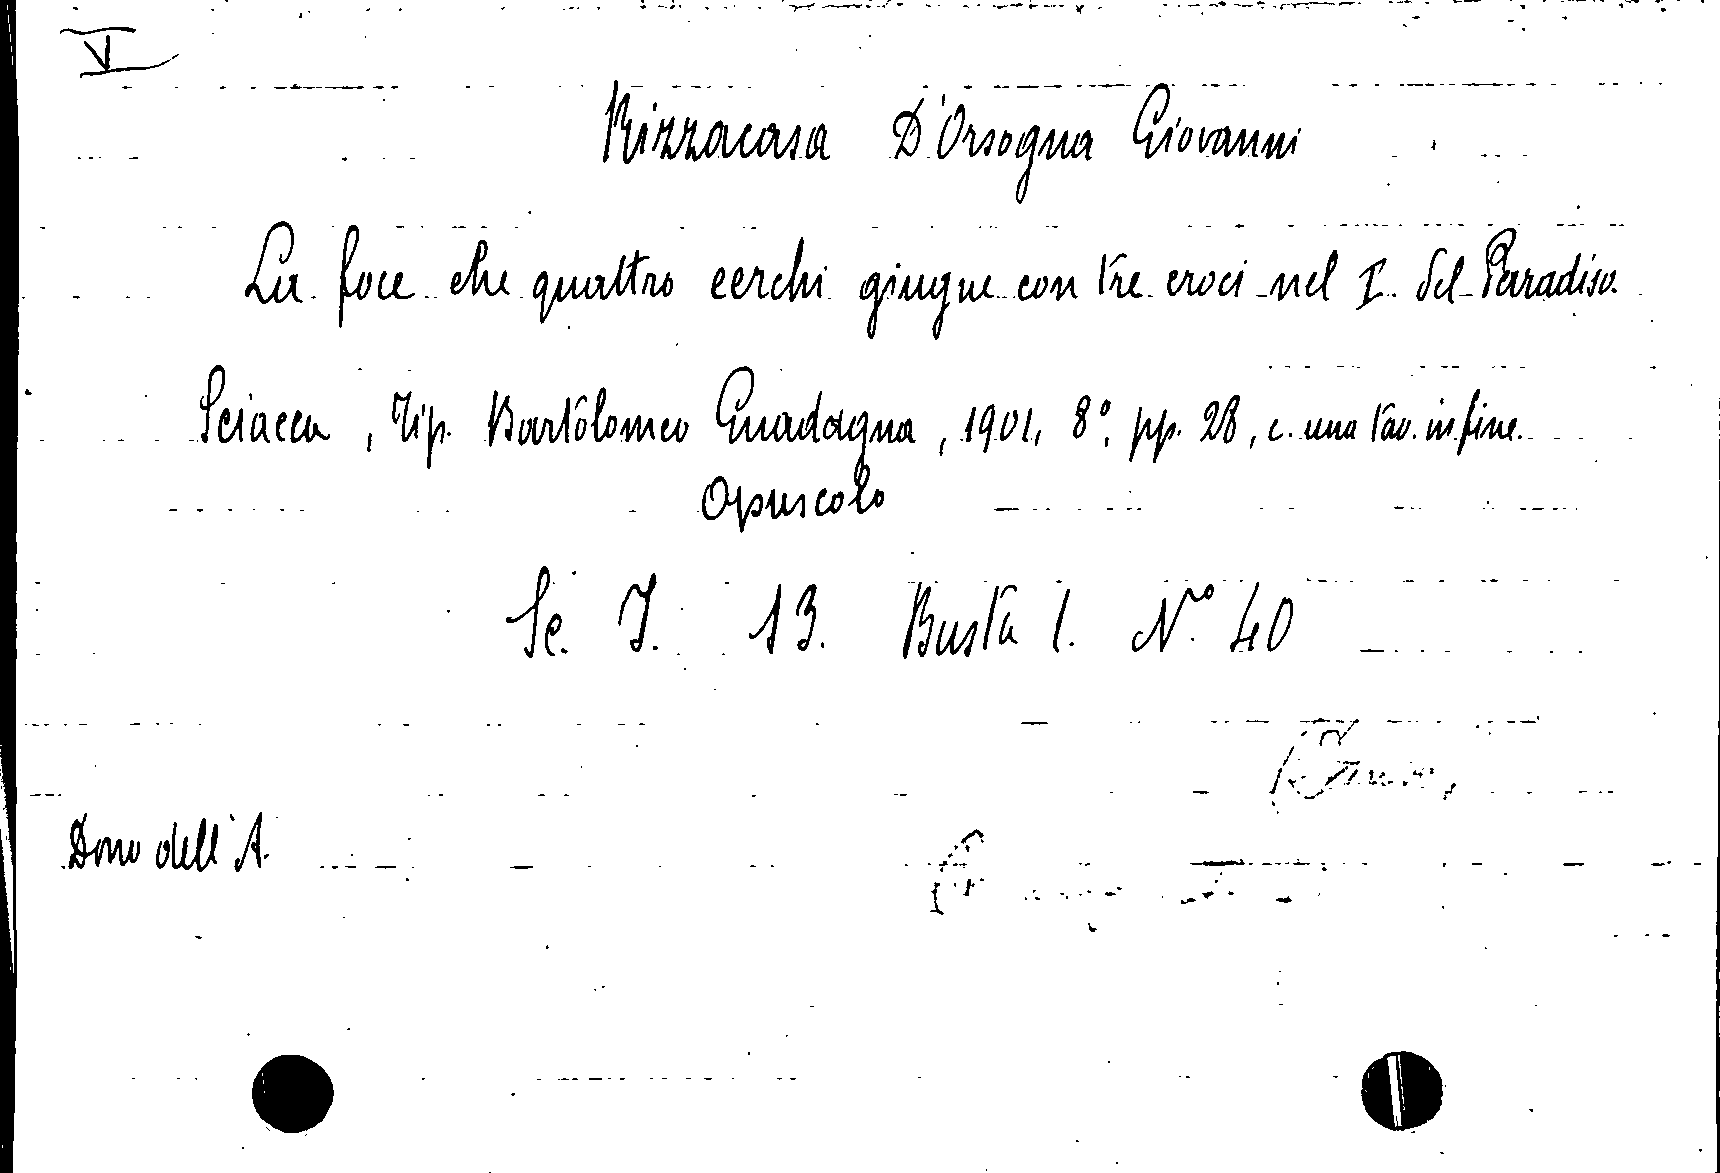 V
Rizzacasa D'Orsogna Giovanni
La foce che quattro cerchi giugne con tre croci nel I. del Paradiso.
Sciacca, Tip. Bartolomeo Guadagna, 1901, 8°, pp. 28, c. una tav. in fine.
Opuscolo
Sc. I. 13. Busta 1. N.° 40
Dono dell'A.